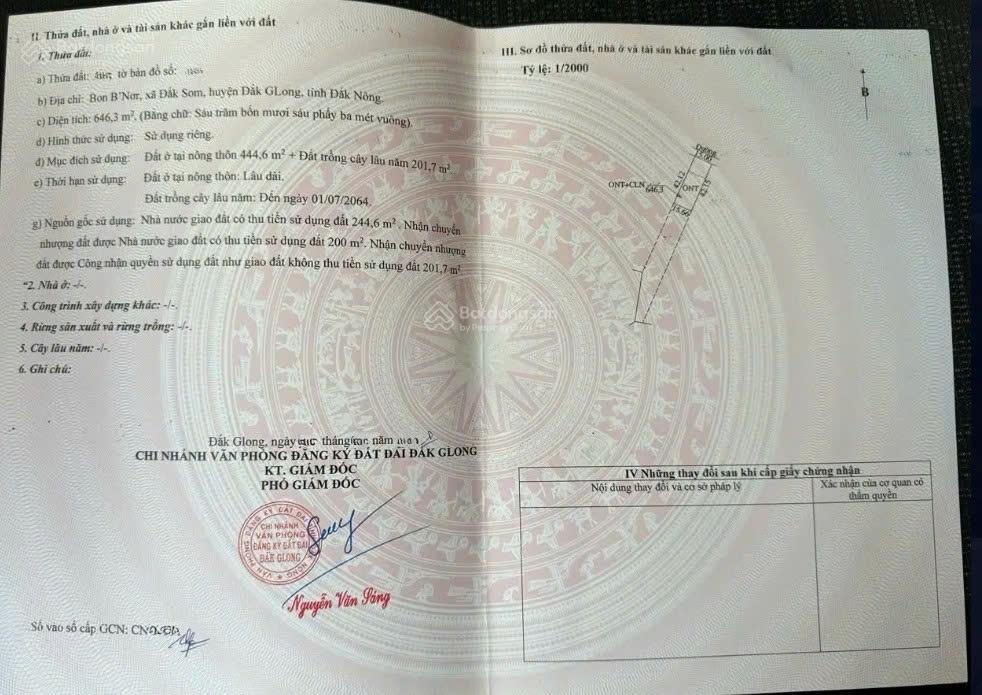 II. Thửa đất, nhà ở và tài sản khác gắn liền với đất
1. Thửa đất:
a) Thửa đất: tờ bản đồ số:
b) Địa chỉ: Bon B'Nơr, xã Đắk Som, huyện Đắk GLong, tỉnh Đắk Nông.
c) Diện tích: 646,3 m², (Bằng chữ: Sáu trăm bốn mươi sáu phẩy ba mét vuông).
d) Hình thức sử dụng: Sử dụng riêng.
đ) Mục đích sử dụng: Đất ở tại nông thôn 444,6 m² + Đất trồng cây lâu năm 201,7 m²
e) Thời hạn sử dụng: Đất ở tại nông thôn: Lâu dài.
Đất trồng cây lâu năm: Đến ngày 01/07/2064.
g) Nguồn gốc sử dụng: Nhà nước giao đất có thu tiền sử dụng đất 244,6 m². Nhận chuyển
nhượng đất được Nhà nước giao đất có thu tiền sử dụng đất 200 m². Nhận chuyển nhượng
đất được Công nhận quyền sử dụng đất như giao đất không thu tiền sử dụng đất 201,7 m²
"2. Nhà ở: -/-.
3. Công trình xây dựng khác: -/-.
4. Rừng sản xuất và rừng trồng: -/-.
5. Cây lâu năm: -/-.
6. Ghi chú:
Đắk Glong, ngày tháng năm
CHI NHÁNH VĂN PHÒNG ĐĂNG KÝ ĐẤT ĐAI ĐẮK GLONG
KT. GIÁM ĐỐC
PHÓ GIÁM ĐỐC
VĂN PHÒNG ĐĂNG KÝ ĐẤT ĐAI
CHI NHÁNH
VĂN PHÒNG
ĐĂNG KÝ ĐẤT ĐAI
ĐẮK GLONG
Nguyễn Văn Sáng
Số vào sổ cấp GCN: CN
III. Sơ đồ thửa đất, nhà ở và tài sản khác gắn liền với đất
Tỷ lệ: 1/2000
B
ONT+CLN 646,3
ONT
42.12
42.15
15.66
Batdongsan
by PropertyGuru
IV Những thay đổi sau khi cấp giấy chứng nhận
Nội dung thay đổi và cơ sở pháp lý
Xác nhận của cơ quan có
thẩm quyền